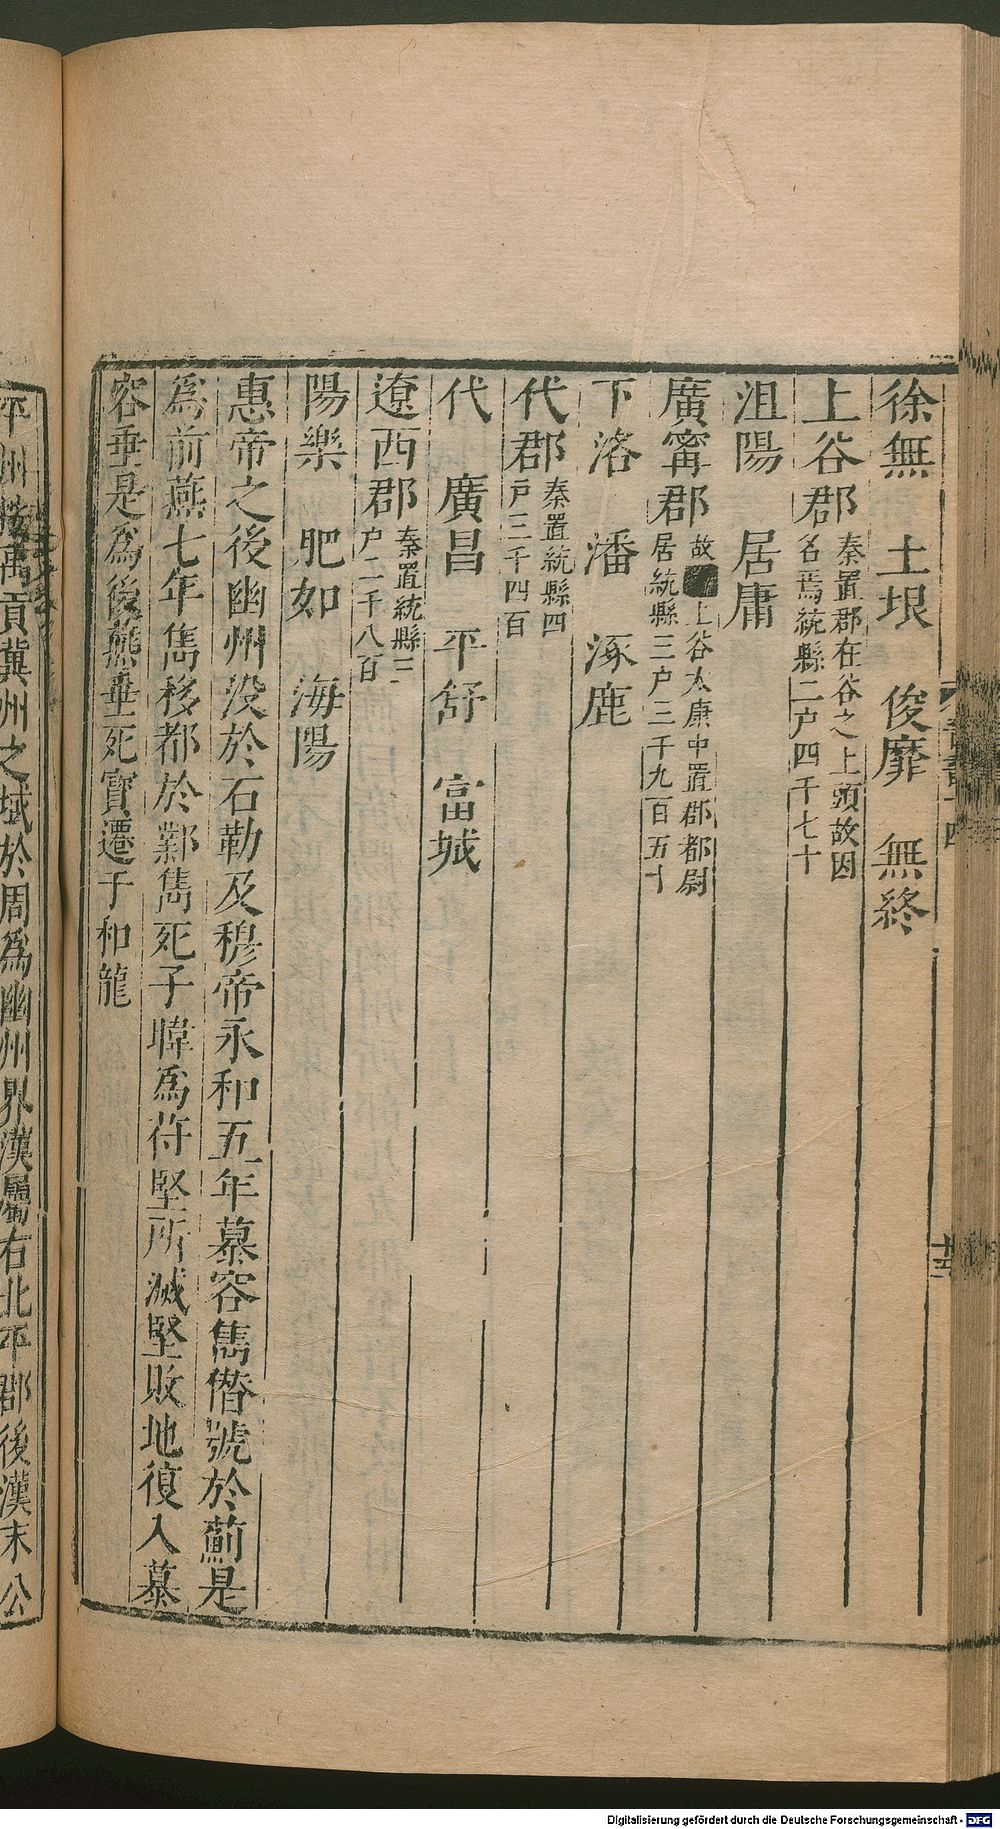 徐無 土垠 俊靡 無終
上谷郡秦置郡在谷之上頭故因
名焉統縣二户四千七十
沮陽 居庸
廣甯郡故上谷太康中置郡都尉
居統縣三户三千九百五十
下洛 潘 涿鹿
代郡秦置統縣四
户三千四百
代 廣昌 平舒 富城
遼西郡秦置統縣三
户二千八百
陽樂 肥如 海陽
惠帝之後幽州没於石勒及穆帝永和五年慕容雋僭號於薊是
爲前燕七年雋移都於鄴雋死子暐爲苻堅所滅堅敗地復入慕
容垂是爲後燕垂死寳遷于和龍
平州 禹貢冀州之域於周爲幽州界漢屬右北平郡後漢末公
Digitalisierung gefördert durch die Deutsche Forschungsgemeinschaft - DFG